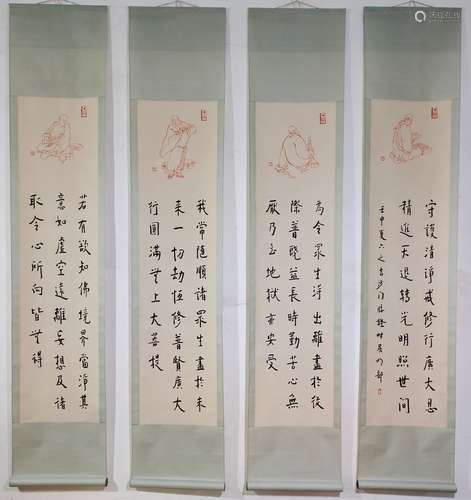 若有欲知佛境界當淨其
意如虛空遠離妄想及諸
取令心所向皆無得
我常隨順諸眾生盡於未
來一切劫恆修普賢廣大
行圓滿無上大菩提
為令眾生淨出離盡於後
際普饒益長時勤苦心無
厭乃至地獄亦安受
守護清淨戒修行廣大忍
精進不退轉光明照世間
壬申夏六之吉沙門